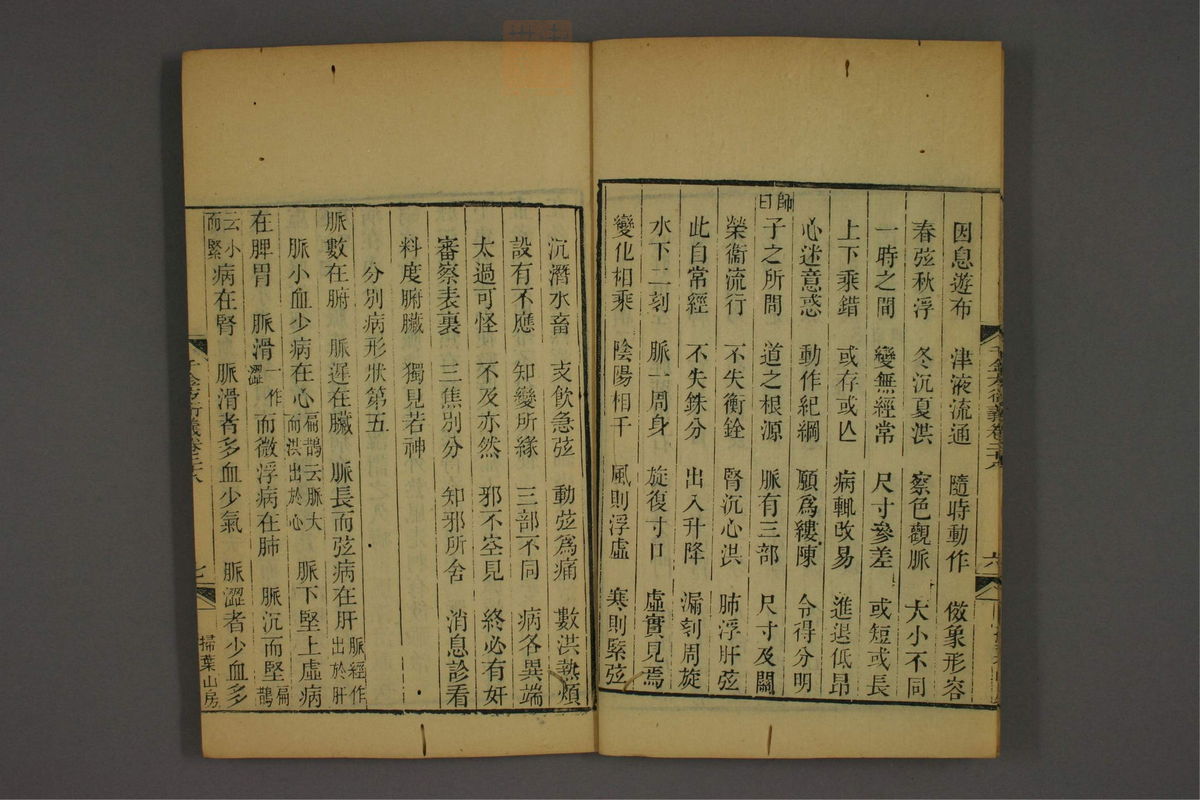 因息遊布　津液流通　隨時動作　傚象形容
春弦秋浮　冬沉夏洪　察色觀脈　大小不同
一時之間　變無經常　尺寸參差　或短或長
上下乘錯　或存或亾　病輒改易　進退低昂
心迷意惑　動作紀綱　願爲縷陳　令得分明
師曰子之所問　道之根源　脈有三部　尺寸及關
榮衞流行　不失衡銓　腎沉心洪　肺浮肝弦
此自常經　不失銖分　出入升降　漏刻周旋
水下二刻　脈一周身　旋復寸口　虛實見焉
變化相乘　陰陽相干　風則浮虛　寒則緊弦
沉潛水畜　支飲急弦　動弦爲痛　數洪熱煩
設有不應　知變所緣　三部不同　病各異端
太過可怪　不及亦然　邪不空見　終必有奸
審察表裏　三焦別分　知邪所舍　消息診看
料度腑臟　獨見若神
分別病形狀第五
脈數在腑　脈遲在臟　脈長而弦病在肝脈經作出於肝
脈小血少病在心扁鵲云脈大而洪出於心　脈下堅上虛病
在脾胃　脈滑一作澀而微浮病在肺　脈沉而堅扁鵲
云小而緊病在腎　脈滑者多血少氣　脈澀者少血多
七
掃葉山房